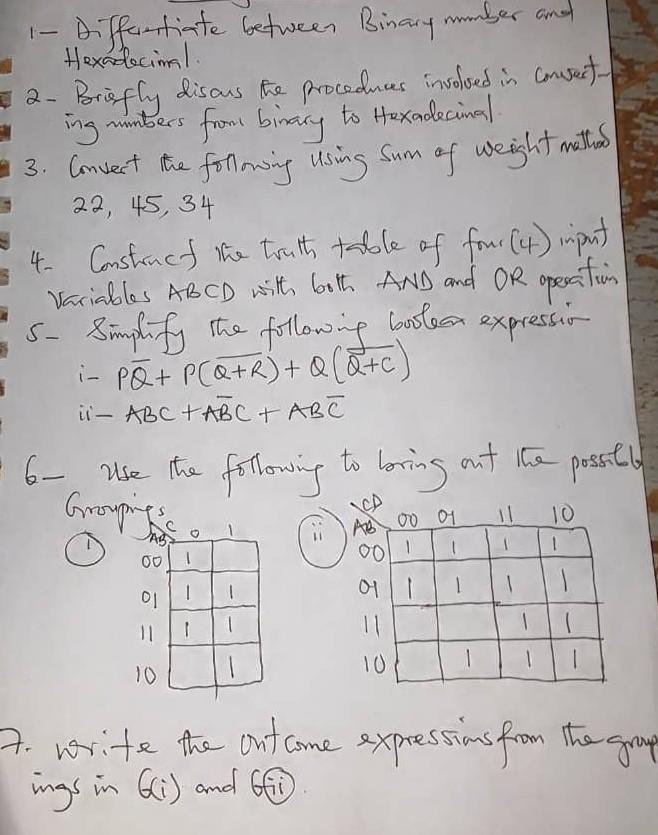 1- Differentiate between Binary number and
Hexadecimal.
2- Briefly discus the procedures involved in convert-
ing numbers from binary to Hexadecimal.
3. Convert the following using sum of weight method
22, 45, 34
4- Construct the truth table of four (4) input
Variables ABCD with both AND and OR operation
5- Simplify the following boolean expression
i- PQ̅ + P(Q̅+̅R̅) + Q(Q̅+̅C̅)
ii- ABC + AB̅C + ABC̅
6- Use the following to bring out the possible
Groupings
i ii
C 0 1 CD 00 01 11 10
AB AB
00 1 00 1 1 1 1
01 1 1 01 1 1 1 1
11 1 1 11 1 1
10 1 10 1 1 1
7. Write the outcome expressions from the group
ings in 6(i) and 6(ii).